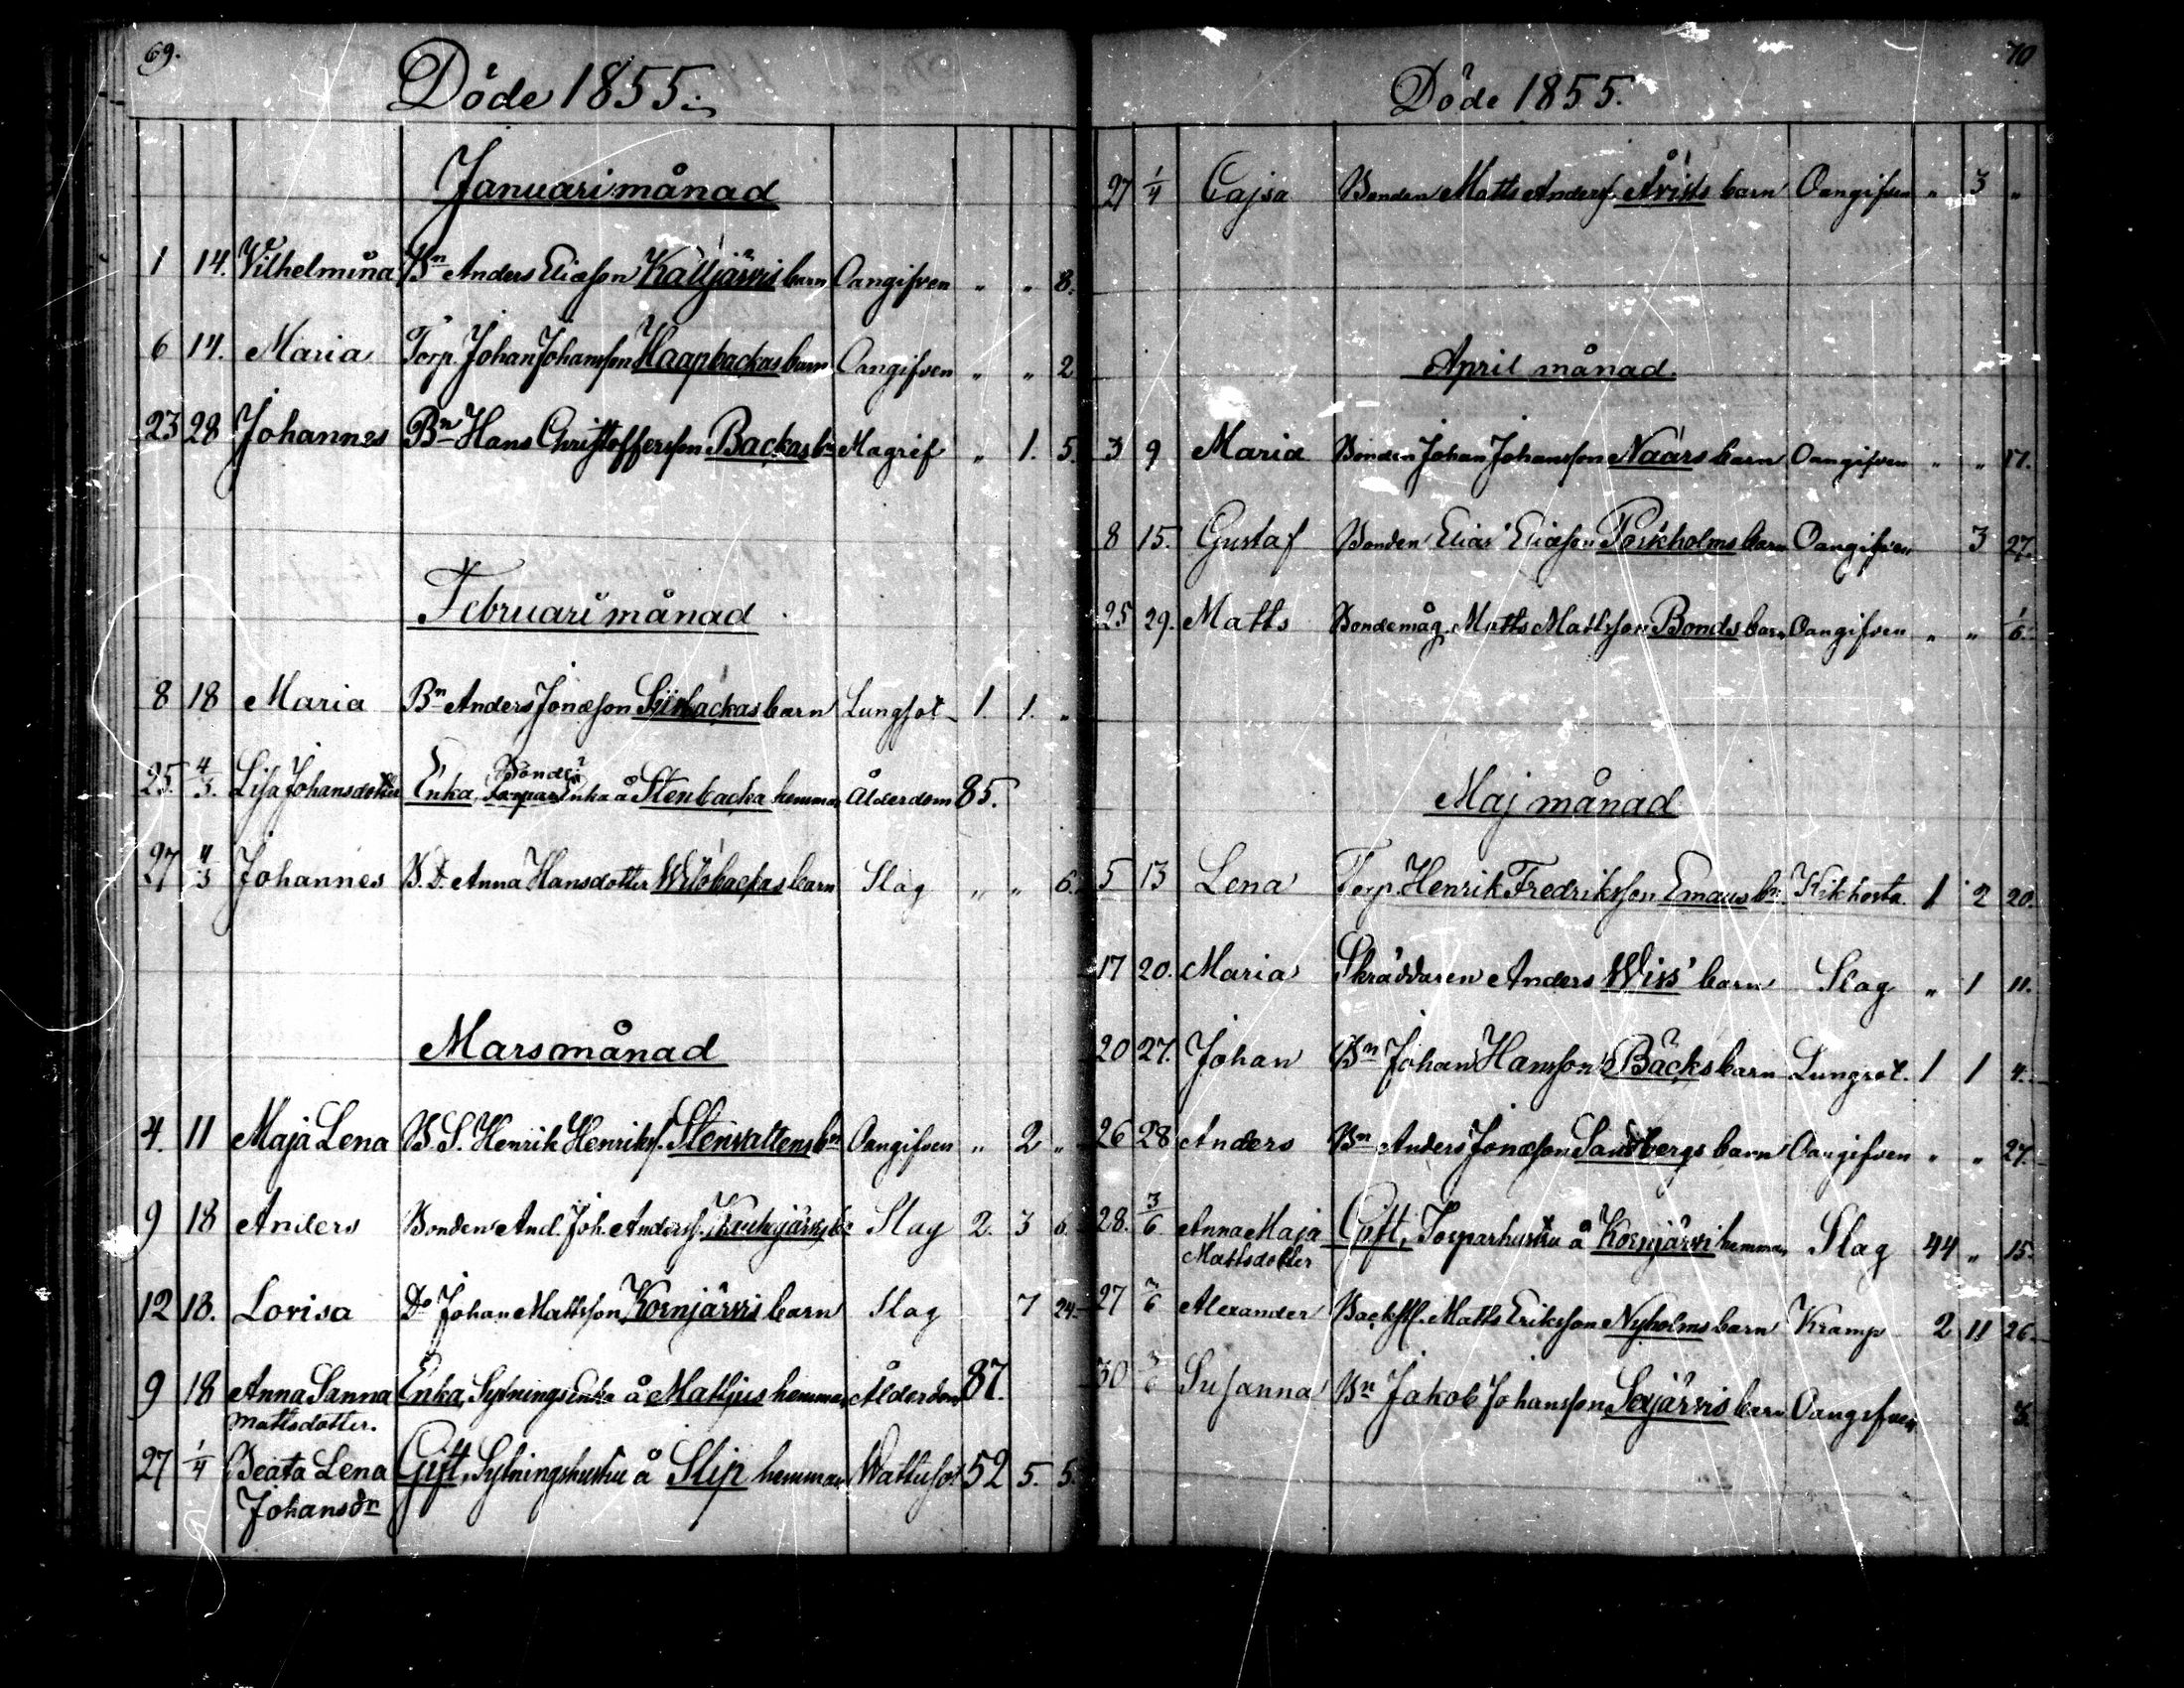 69.
Döde 1855.
Januari månad
1 14. Vilhelmina Bn Anders Eliasson Kalljärvis barn Oangifven " " 8.
6 14. Maria Torp. Johan Johansson Haapbackas barn Oangifven " " 2
23 28 Johannes Bn Hans Christoffersson Backas bn Magref " 1. 5.
Februari månad
8 18 Maria Bn Anders Jonasson barn Lungsot 1. 1. "
Bonde
25. 4/3. Lisa Johansdotter Enka, Enka å Stenbacka hemman Ålderdom 85.
27 4/3 Johannes B. D. Anna Hansdotter barn Slag " " 6.
Marsmånad
4. 11 Maja Lena B. S. Henrik Henriks. Stenvattens bn Oangifven " 2 "
9 18 Anders Bonden And. Joh. Anderss. Slag 2. 3 6.
12 18. Lovisa Do Johan Mattsson Kornjärvis barn Slag 7 24.
9 18 Anna Sanna Enka, Sytnings Enka å Matljus hemman Ålderdom 87.
Mattsdotter.
27 1/4 Beata Lena Gift, Sytningshustru å Slip hemman Wattusot 52 5. 5.
Johansdr
70
Döde 1855.
27 1/4 Cajsa Bonden Matts Anders. Åvists barn Oangifven " 3 "
April månad.
3 9 Maria Bonden Johan Johansson Naars barn Oangifven " " 17.
8 15. Gustaf Bonden Elias Eliasson Torkholms barn Oangifven 3 27.
25 29. Matts Bondemåg Matts Mattsson Bonds barn Oangifven " "
Maj månad
5 13 Lena Torp. Henrik Fredriksson Emaus bn. Kikhosta. 1 2 20.
17 20. Maria Skräddaren Anders Wiss' barn Slag " 1 11.
20 27. Johan Bn Johan Hansson Bäcks barn Lungsot. 1 1 4.
26 28 Anders Bn Anders Jonasson Sandbergs barn Oangifven " " 27.
28. 3/6 Anna Maja Gift, Torparhustru å Kornjärvi hemman Slag 44 " 15.
Mattsdotter
27 3/6 Alexander Backst. Matts Eriksson Nyholms barn Kramp 2 11 26.
30 3/6 Susanna Bn Jakob Johansson Sexjärvis barn Oangifven 3.